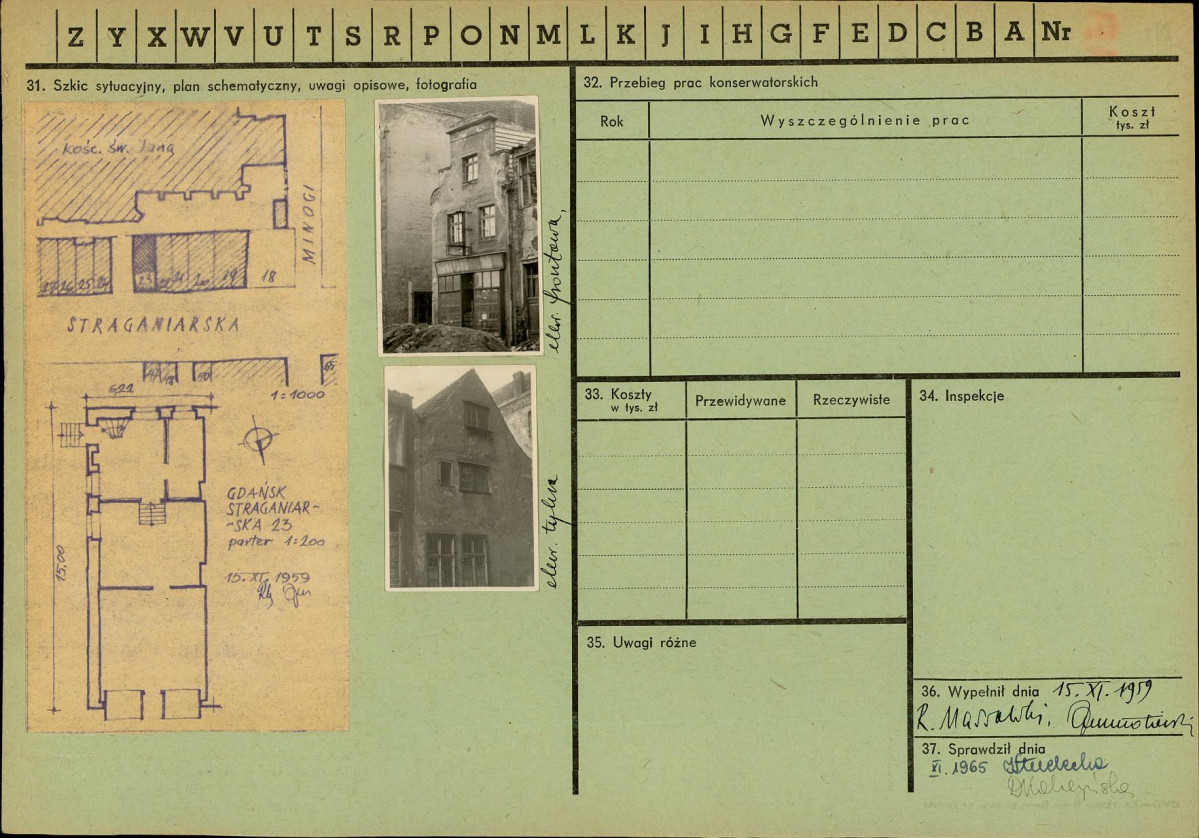 Z Y X W V U T S R P O N M L K J I H G F E D C B A Nr
31. Szkic sytuacyjny, plan schematyczny, uwagi opisowe, fotografia
kość. św. Jana
MINOGI
27 26 25 24 23 22 21 20 19 18
STRAGANIARSKA
1:1000
622
15,00
GDAŃSK
STRAGANIAR-
-SKA 23
parter 1:200
15.XI.1959
elew. frontowa,
elew. tylna
32. Przebieg prac konserwatorskich
Rok
Wyszczególnienie prac
Koszt
tys. zł
33. Koszty
w tys. zł
Przewidywane
Rzeczywiste
34. Inspekcje
35. Uwagi różne
36. Wypełnił dnia 15.XI.1959
R. Massalski,
37. Sprawdził dnia
XI. 1965